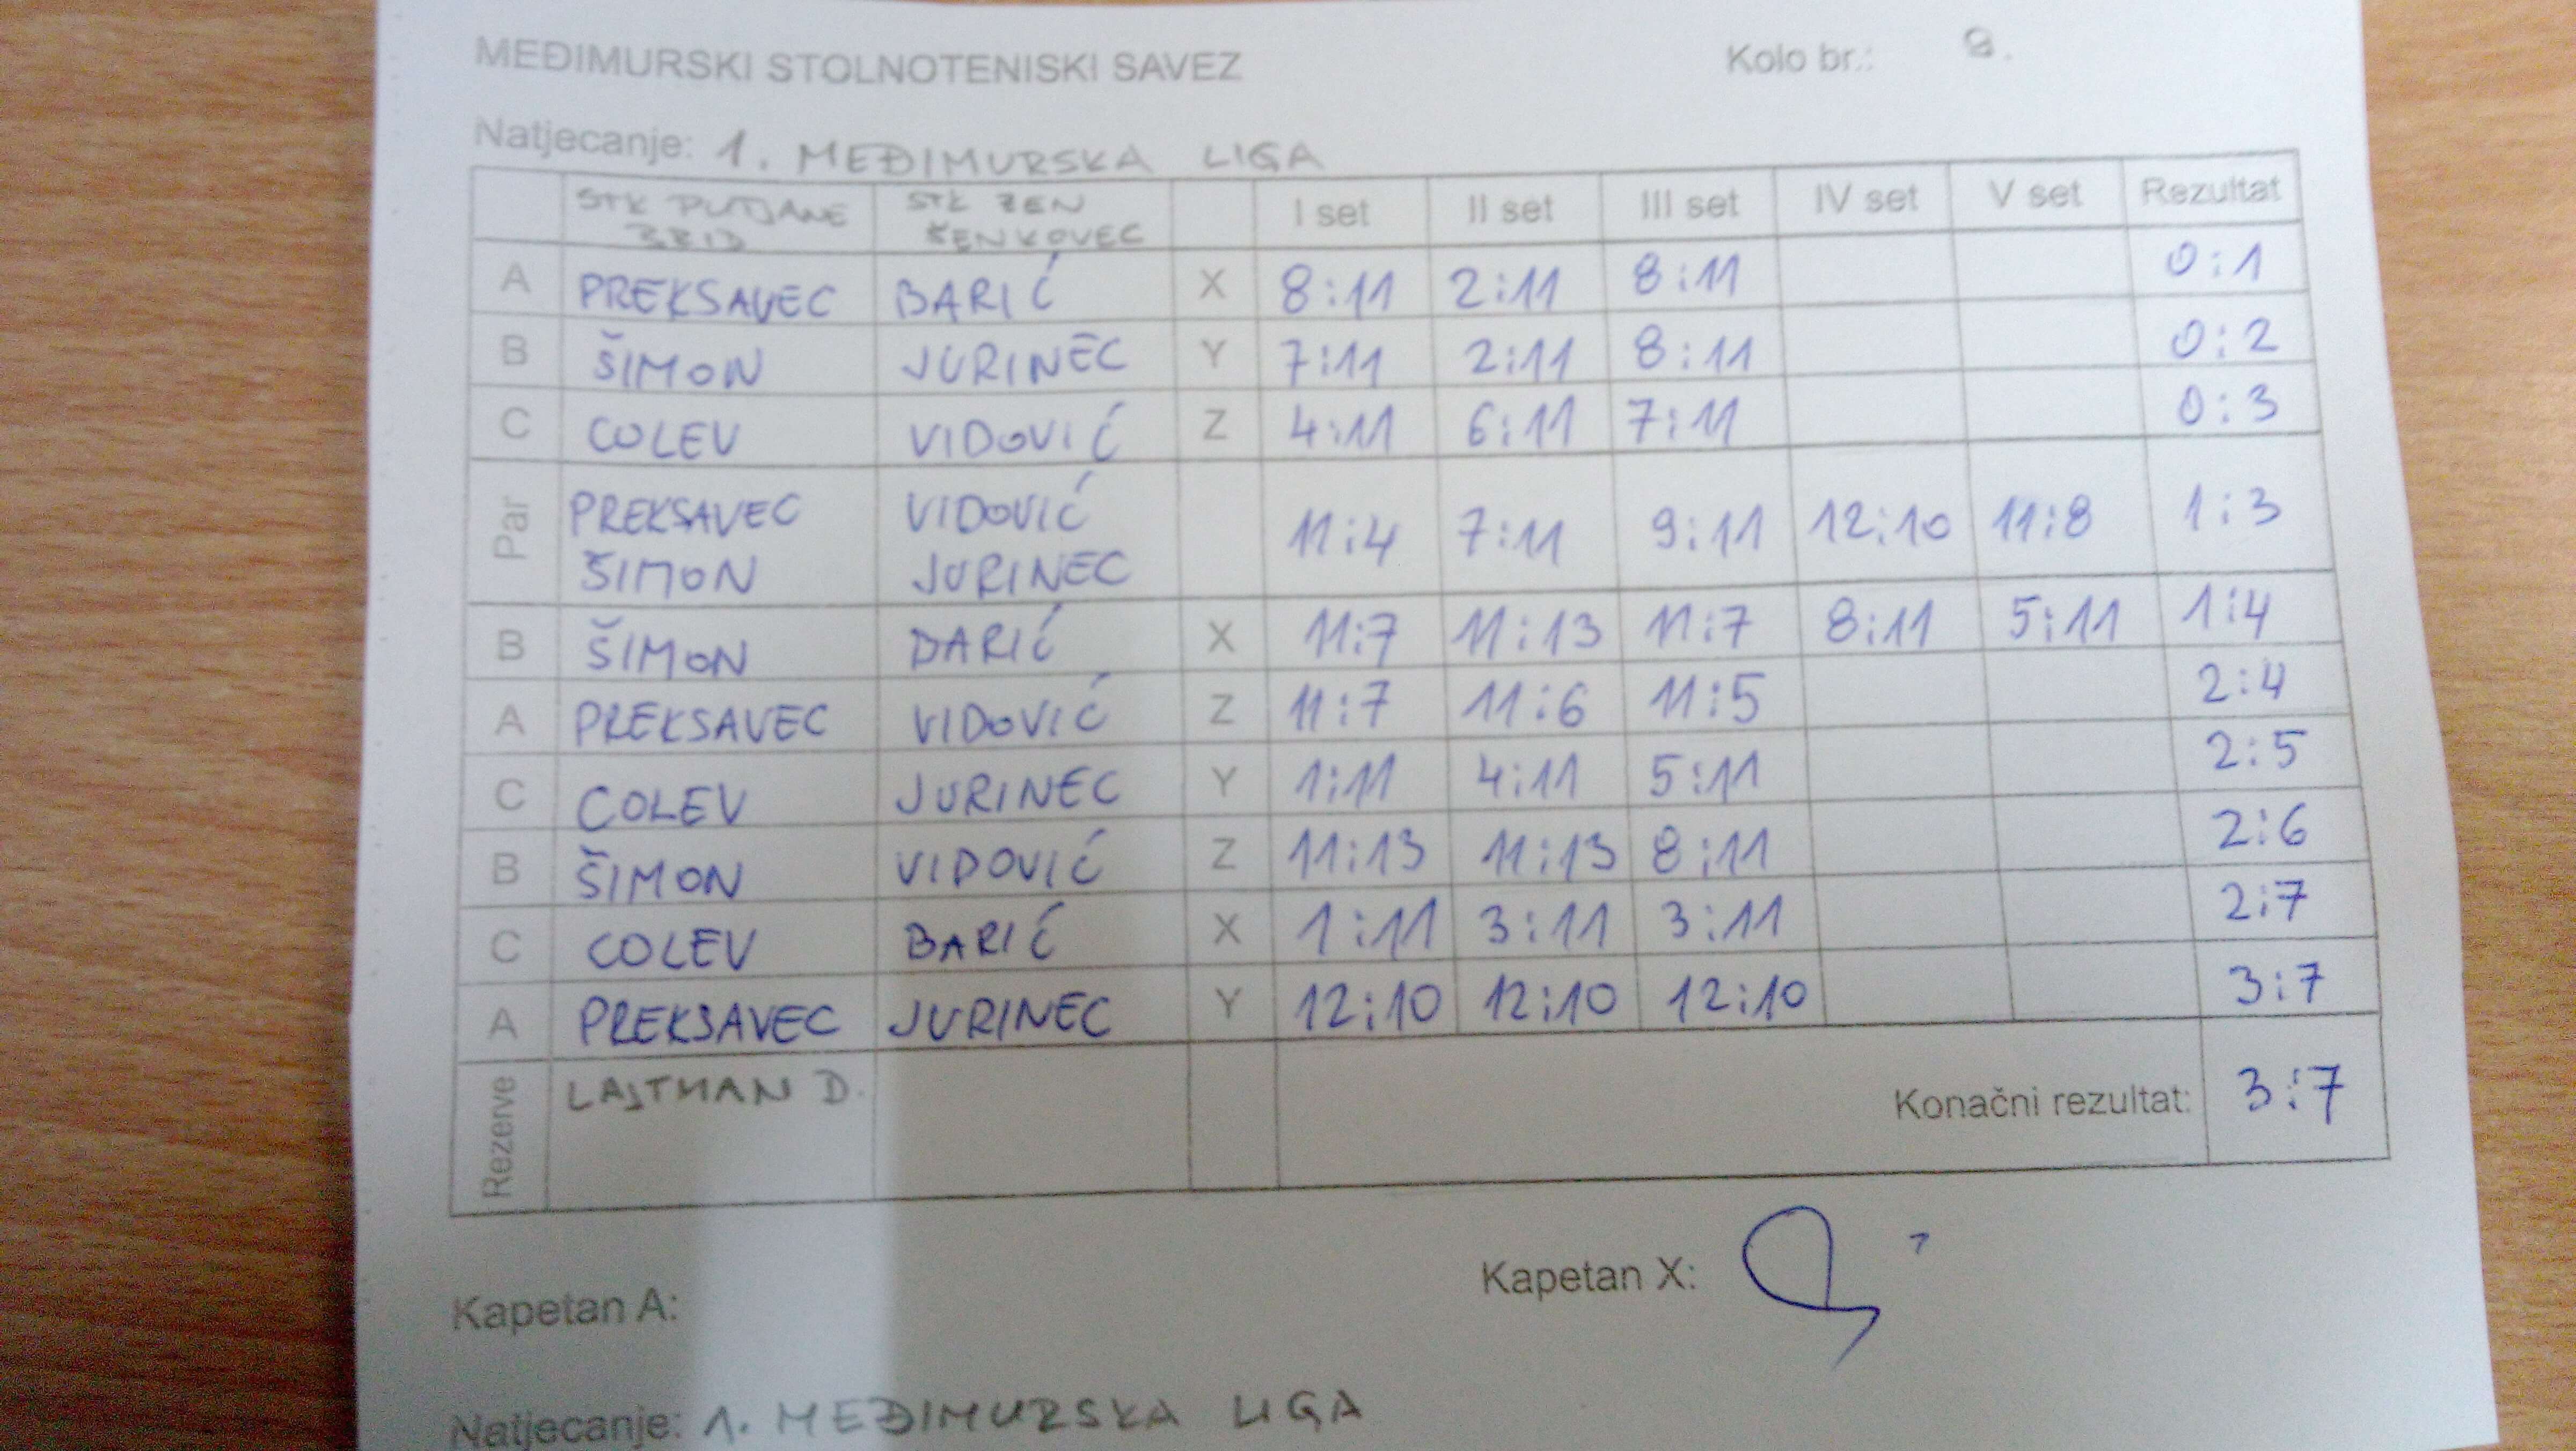 MEĐIMURSKI STOLNOTENISKI SAVEZ Kolo br.:
Natjecanje: 1. MEĐIMURSKA LIGA
STK PUTJANE STK ZEN I set II set III set IV set V set Rezultat
ŠENKOVEC
A PREKSAVEC BARIĆ X 8:11 2:11 8:11 0:1
B ŠIMON JURINEC Y 7:11 2:11 8:11 0:2
C COLEV VIDOVIĆ Z 4:11 6:11 7:11 0:3
Par PREKSAVEC VIDOVIĆ 11:4 7:11 9:11 12:10 11:8 1:3
ŠIMON JURINEC
B ŠIMON DARIĆ X 11:7 11:13 11:7 8:11 5:11 1:4
A PREKSAVEC VIDOVIĆ Z 11:7 11:6 11:5 2:4
C COLEV JURINEC Y 1:11 4:11 5:11 2:5
B ŠIMON VIDOVIĆ Z 11:13 11:13 8:11 2:6
C COLEV BARIĆ X 1:11 3:11 3:11 2:7
A PREKSAVEC JURINEC Y 12:10 12:10 12:10 3:7
Rezerve LAJTMAN D. Konačni rezultat: 3:7
Kapetan A: Kapetan X:
Natjecanje: 1. MEĐIMURSKA LIGA